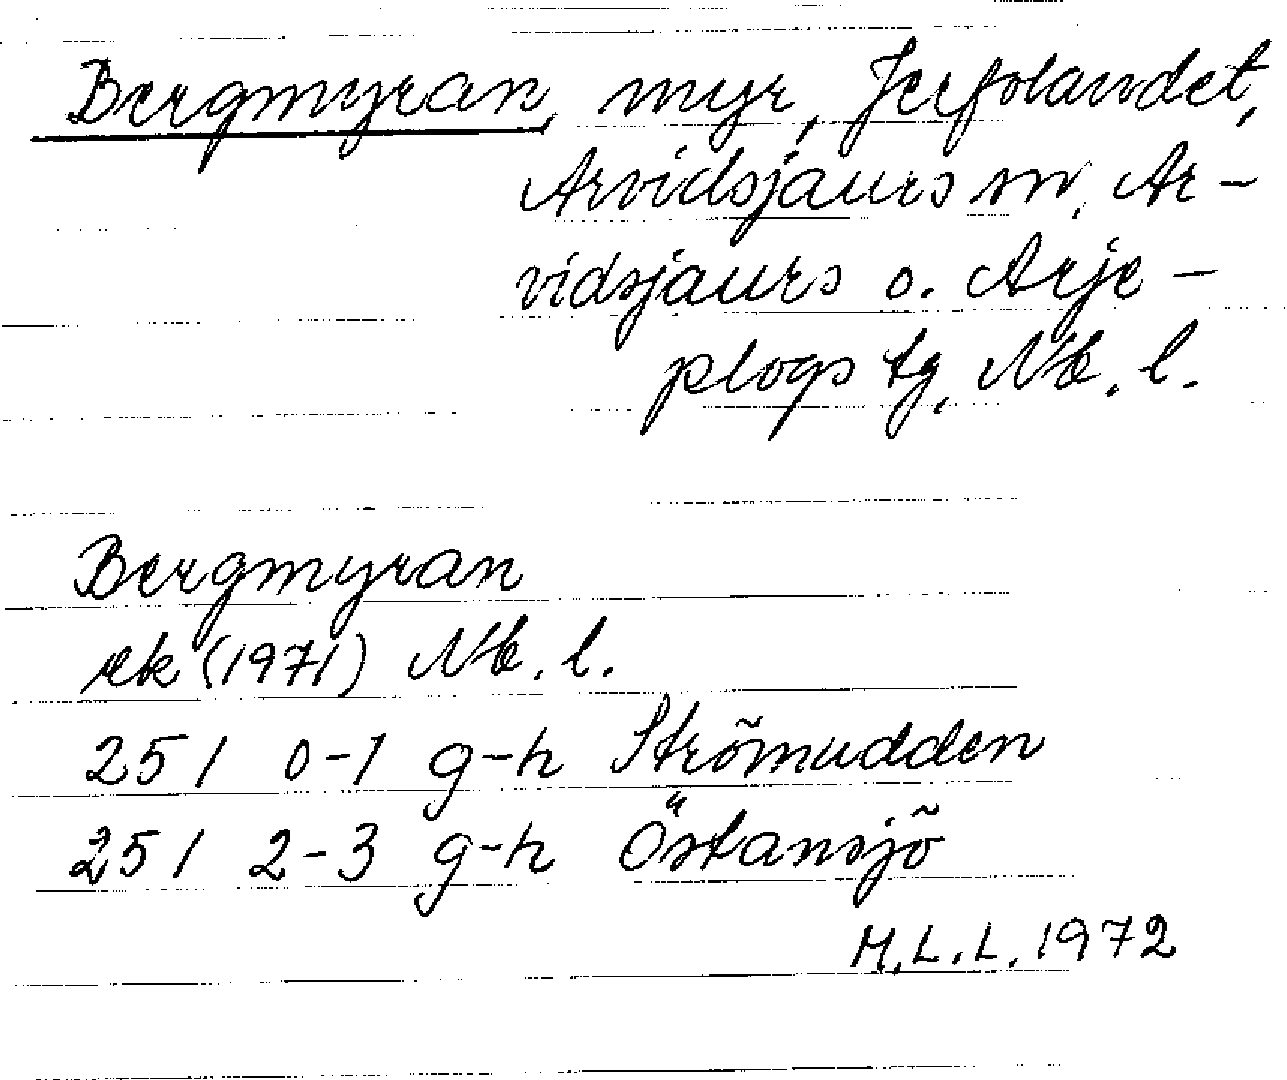 Bergmyran, myr, Jerfolandet,
Arvidsjaurs sn, Ar-
vidsjaurs o. Arje-
plogs tg, Nb. l.
Bergmyran
rek (1971) Nb. l.
25 I 0-1 g-h Strömudden
25 I 2-3 g-h Östansjö
M.L.L. 1972